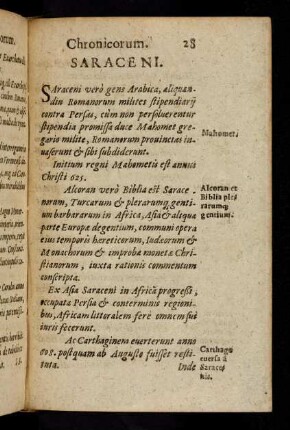 Chronicorum. 28
SARACENI.
Saraceni verò gens Arabica, aliquan-
diu Romanorum milites stipendiarij
contra Persas, cùm non persoluerentur
stipendia promissa duce Mahomet gre-
gario milite, Romanorum prouincias in-
uaserunt & sibi subdiderunt.
Mahomet.
Initium regni Mahometis est annus
Christi 625.
Alcoran verò Biblia est Sarace-
norum, Turcarum & plerarumq; gentium
barbararum in Africa, Asia & aliqua
parte Europa degentium, communi opera
eius temporis hæreticorum, Iudæorum &
Monachorum & improba moneta Chri-
stianorum, iuxta rationis commentum
conscripta.
Alcoran et
Biblia ple
rarumq;
gentium.
Ex Asia Saraceni in Africã progressi,
occupata Persia & conterminis regioni-
bus, Africam littoralem ferè omnem sui
iuris fecerunt.
At Carthaginem euerterunt anno
698. postquam ab Augusto fuisset resti-
tuta. Inde
Carthago
euersa à
Sarace-
nis.